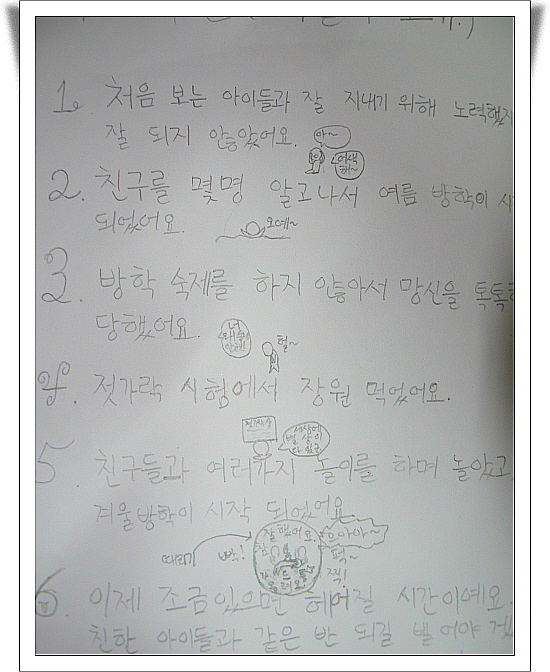 1. 처음 보는 아이들과 잘 지내기 위해 노력했지
잘 되지 안핬았어요.
아~
어색
해~
2. 친구를 몇명 알고나서 여름 방학이 시
되었어요.
오예~
3. 방학 숙제를 하지 안핬아서 망신을 톡톡히
당했어요.
너
헐~
4. 젓가락 시험에서 장원 먹었어요.
젓가락상
세상에
별 상이
다 있군
5. 친구들과 여러가지 놀이를 하며 놀았고
겨울방학이 시작 되었어요
때리기
잘했어요.
으아아~
퍽~
찍!
6. 이제 조금있으면 헤어질 시간이예요.
친한 아이들과 같은 반 되길 빌어야겠